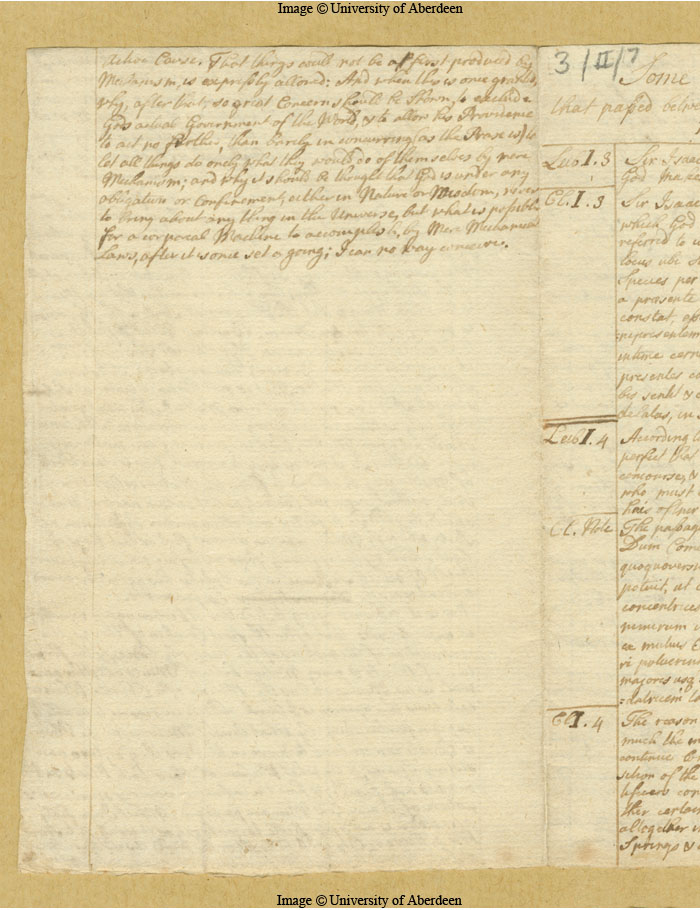 Image © University of Aberdeen
active Cause. That things could not be at first produced by
Mechanism, is expressly allowed: And when this is once granted,
why, after that, so great Concern should be shown, to exclude
Gods actual Government of the World, & to allow his Providence
to act no further, than barely in concurring (as the Phrase is) to
let all things do only what they would do of themselves by mere
Mechanism; and why it should be thought that God is under any
obligation or Confinement, either in Nature or Wisdom, never
to bring about any thing in the Universe, but what is possible
for a corporeal Machine to accomplish, by Mere Mechanical
Laws, after it is once set a going; I can no way conceive.
3/II/7
Some
that paped betw
Leib I. 3
Sir Isaac
God makes
Cl. I. 3
Sir Isaac
which God
referred to
locus ubi
Species per
a præsente
constat,
representem
intime cern
presentes
delatas, in
Leib I. 4
According to
perfect that
concourse, &
who must
Cl. Note
The passage
Dum Com
quoquovers
potuit, ut
concentrices
numerum
ex mutuis
ri poluerint
majores usq
Cl I. 4
The reason
much the
continue
action of the
Artificers con
ther certain
altogether
Springs &
Image © University of Aberdeen